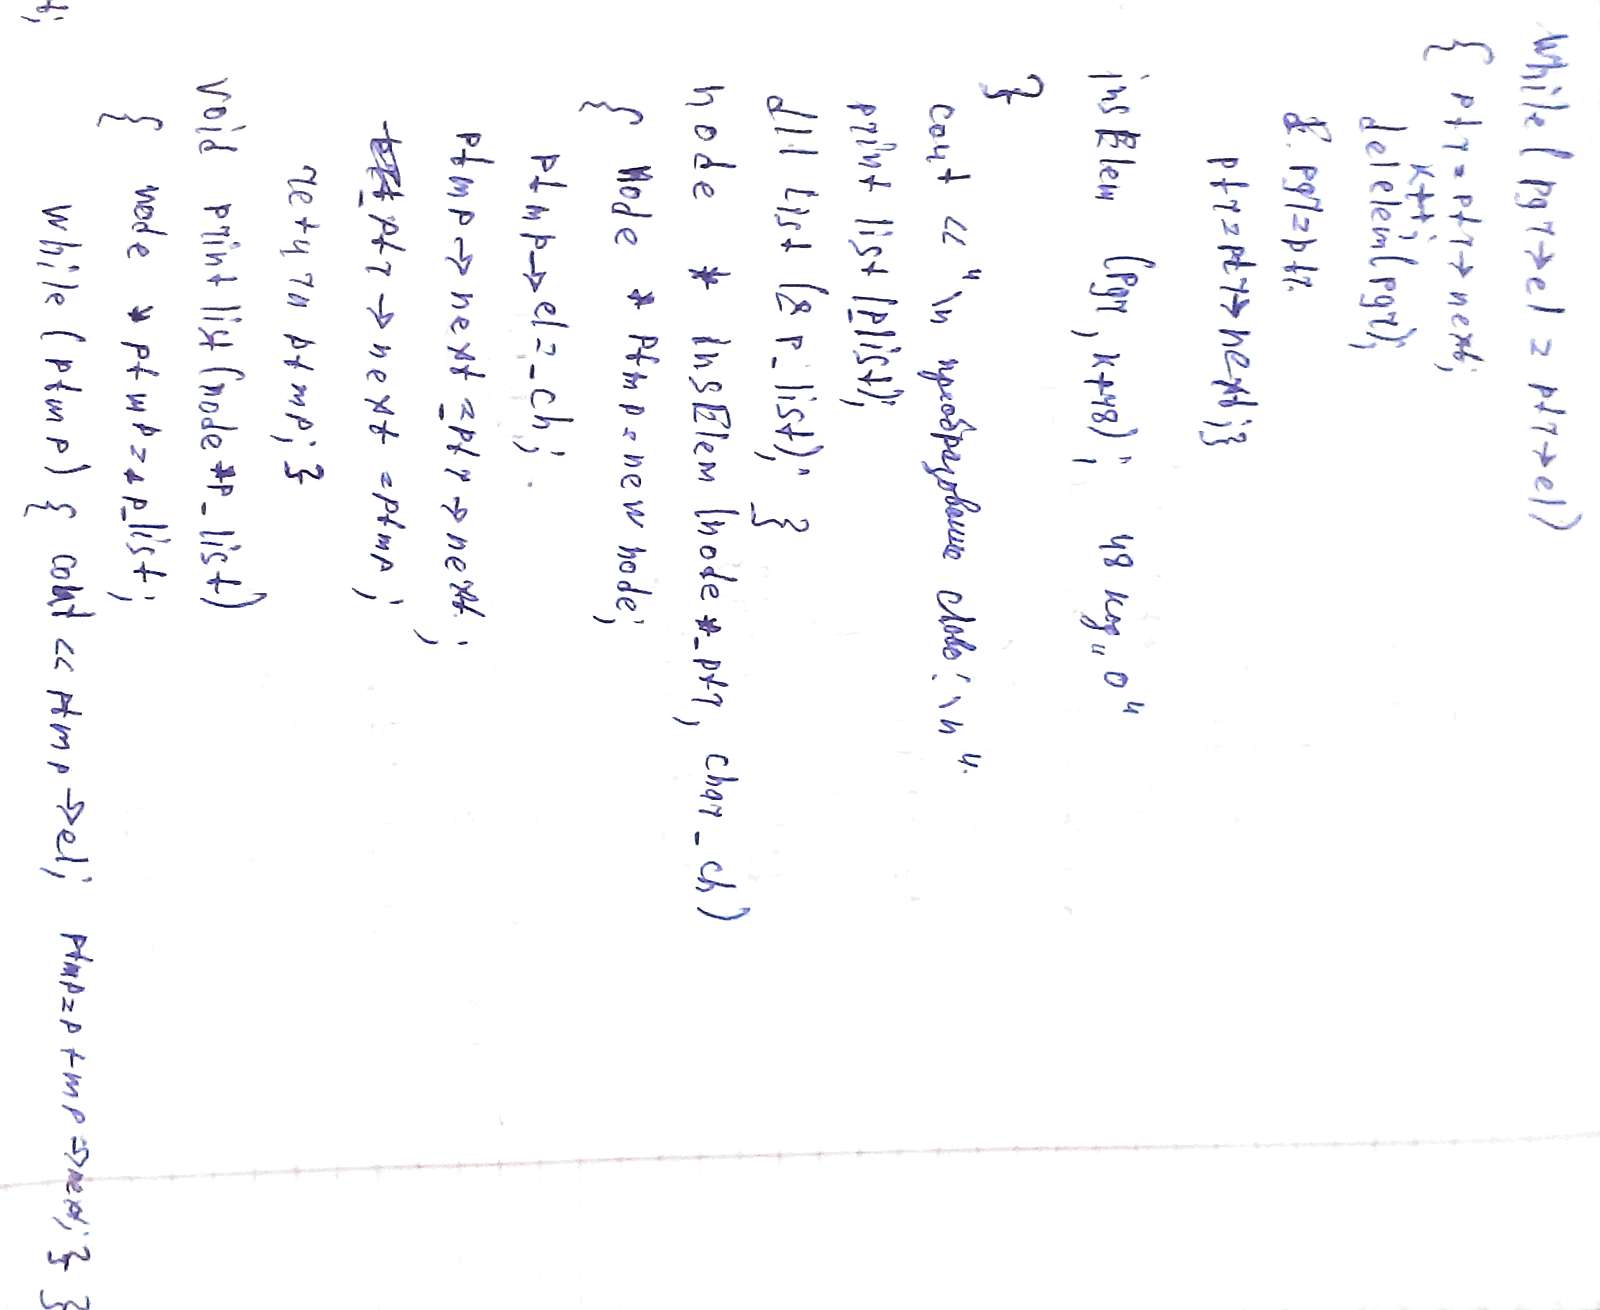 while ( pqr→el = ptr→el)
{ ptr = ptr→next;
k++;
delelem(pqr);
pqr=ptr.
ptr=ptr→next;}
insElem (pqr, k+48); 48 код „0"
}
cout << "\n преобразование слово:\n".
print list (plist);
dll List (& p_list); }
node * insElem (node *_ptr, char _ch)
{ Node * ptmp = new node;
ptmp→el = _ch;
ptmp→next = ptr→next;
_ptr→next = ptmp;
return ptmp; }
void print list (node *p_list)
{ node * ptmp = *p_list;
while (ptmp) { cout << ptmp→el; ptmp = ptmp→next; } }
t;